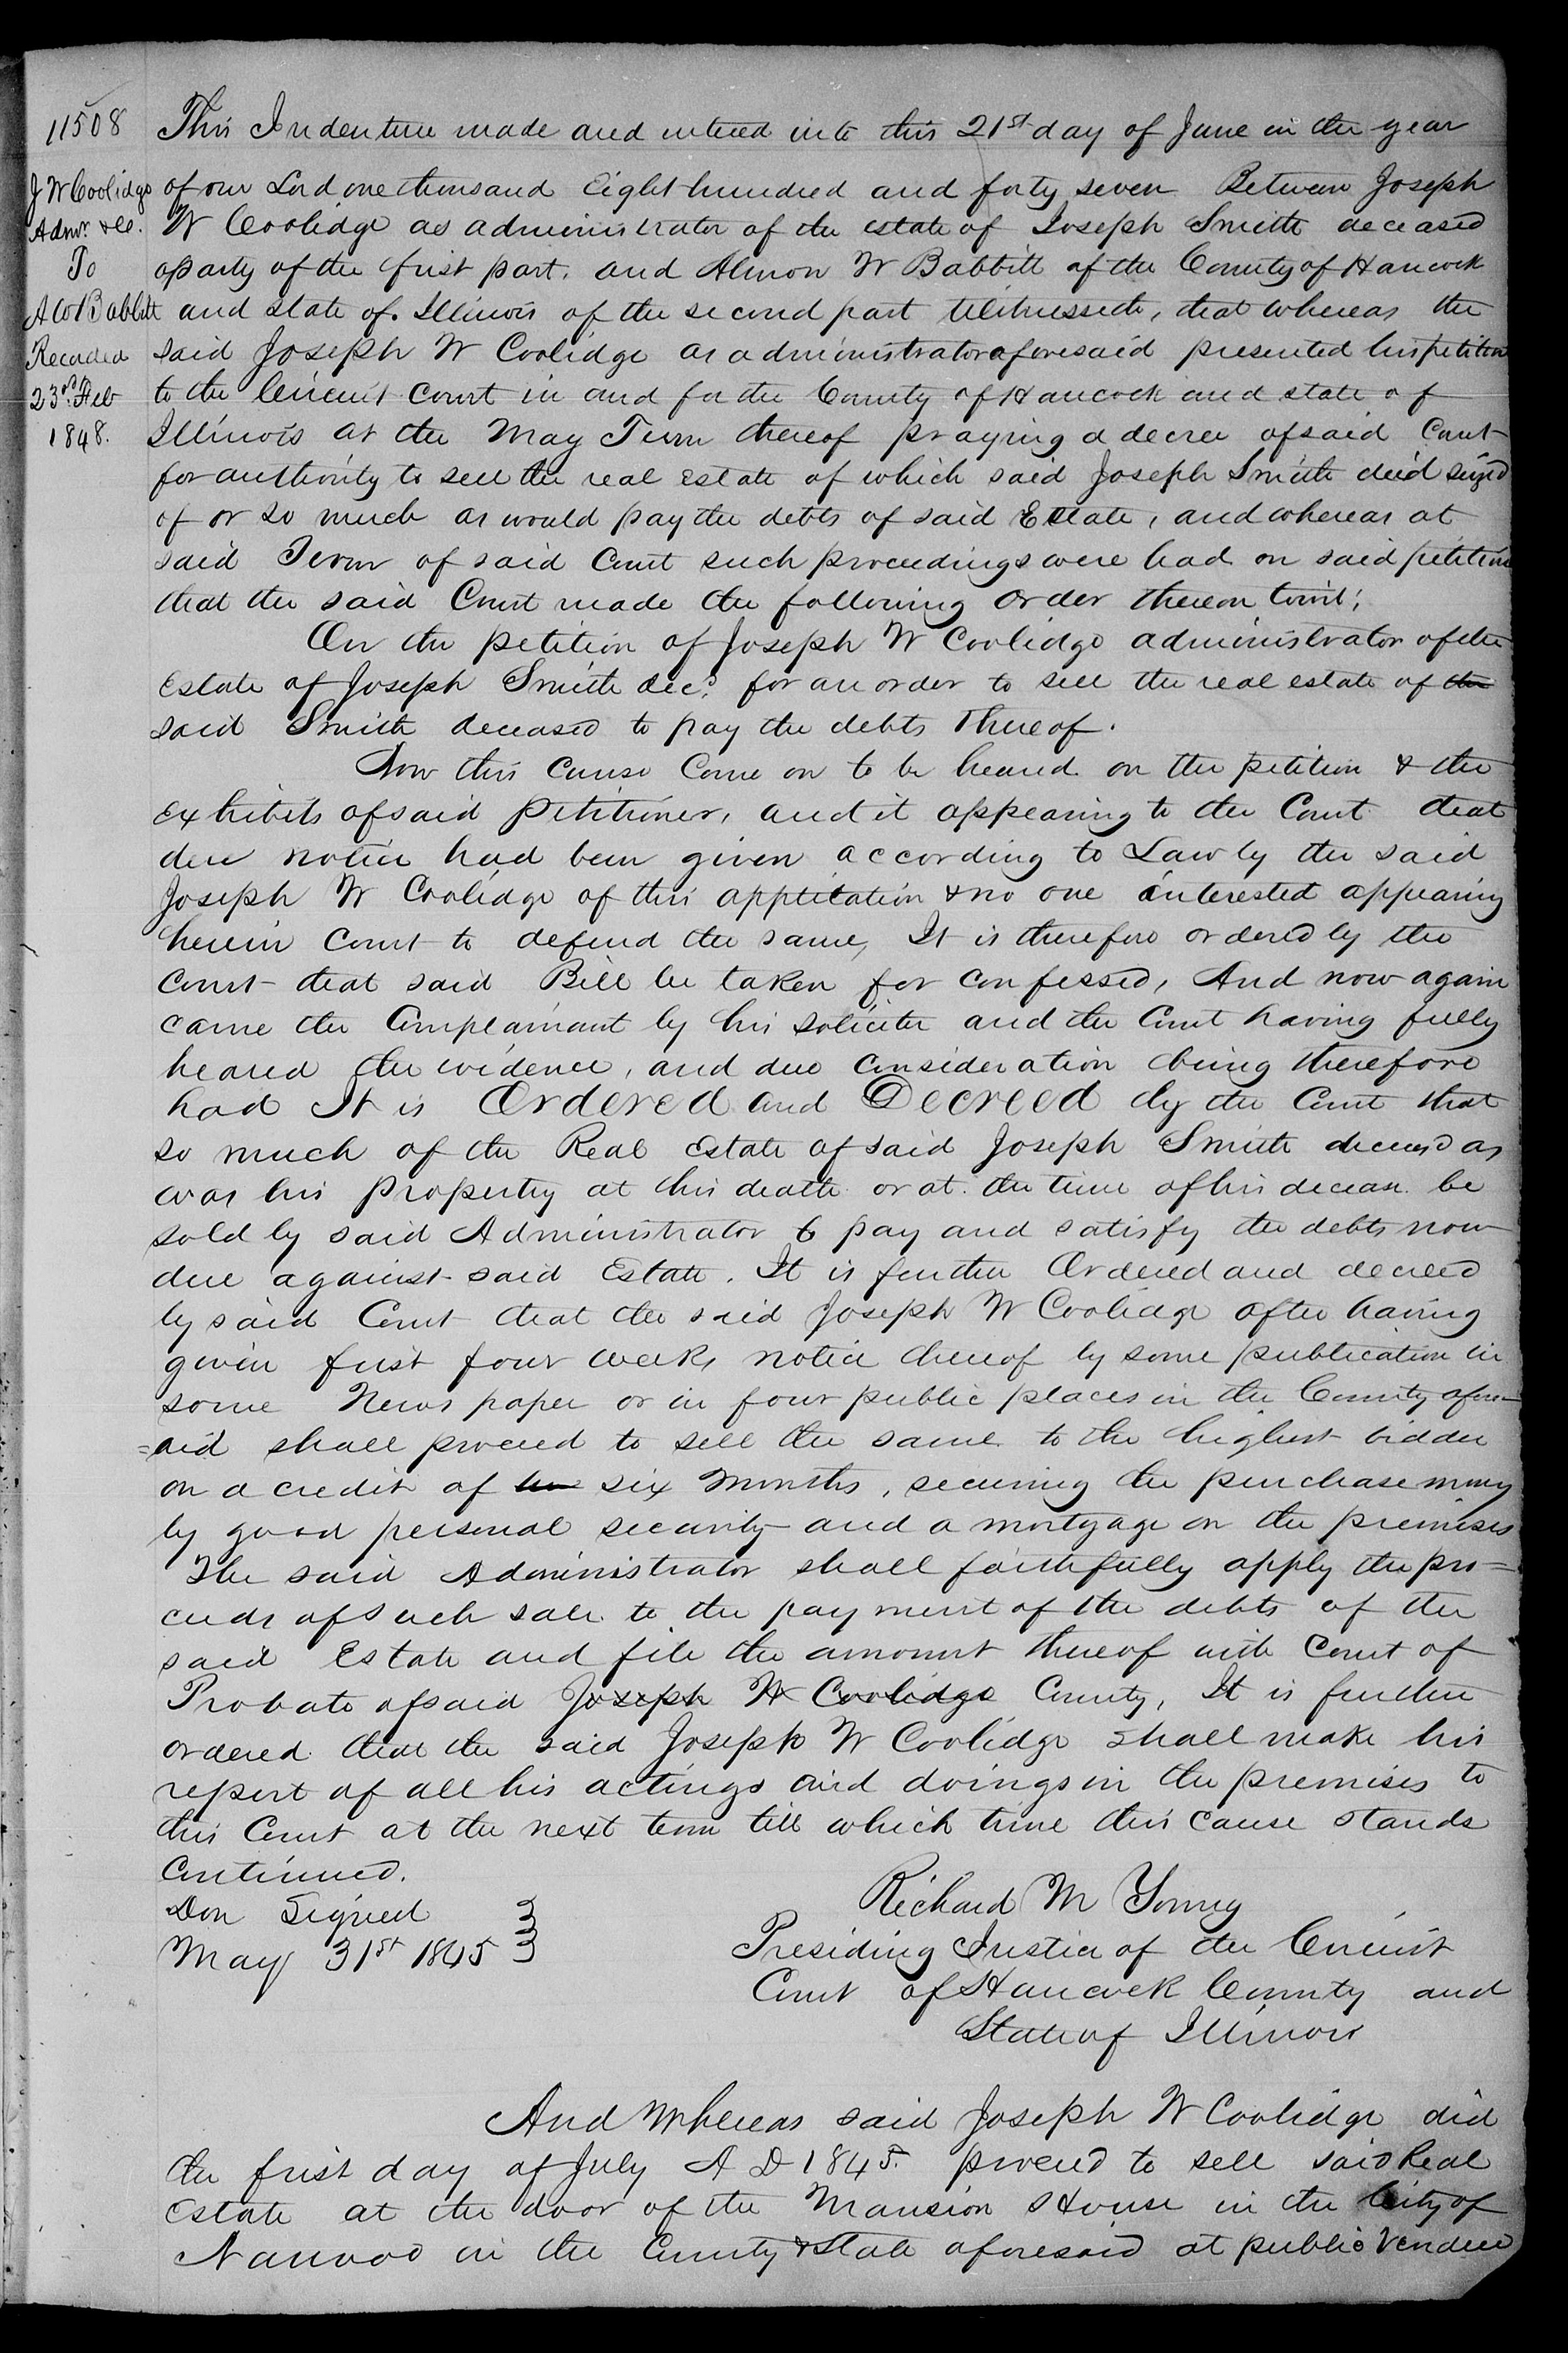 11508
J W Coolidge
Admr. &c.
To
A W Babbitt
Recorded
23rd Feb
1848.
This Indenture made and entered into this 21st day of June in the year
of our Lord one thousand Eight hundred and forty seven Between Joseph
W Coolidge as administrator of the estate of Joseph Smith deceased
aparty of the first part. and Almon W Babbitt of the County of Hancock
and state of. Illinois of the second part Witnesseth, that whereas the
said Joseph W Coolidge as administrator aforesaid presented his petition
to the Circuit Court in and for the County of Hancock and state of
Illinois at the May Term thereof praying a decree of said Court
for authority to sell the real Estate of which said Joseph Smith died siezed
of or so much as would pay the debts of said Estate, and whereas at
said Term of said Court such proceedings were had on said petition
that the said Court made the following order thereon towit;
On the petition of Joseph W Coolidge administrator of the
Estate of Joseph Smith decd for an order to sell the real estate of the
said Smith deceased to pay the debts thereof.
Now this cause Come on to be heard on the petition & the
exhibits of said Petitioner, and it appearing to the Court that
due notice had been given according to Law by the said
Joseph W Coolidge of this application & no one interested appearing
herein Court to defend the same, It is therefore ordered by the
Court that said Bill be taken for confessed, And now again
came the Complainant by his solicitor and the Court having fully
heard the evidence, and due consideration being therefore
had It is Ordered and Decreed by the Court that
so much of the Real Estate of said Joseph Smith deceased as
was his property at his death or at the time of his decease be
sold by said Administrator to pay and satisfy the debts now
due against said Estate. It is further Ordered and decreed
by said Court that the said Joseph W Coolidge after having
given first four weeks notice thereof by some publication in
some News paper or in four public places in the County afores
=aid shall proceed to sell the same to the highest bidder
on a credit of six months, securing the purchase money
by good personal security and a mortgage on the premises
The said Administrator shall faithfully apply the pro=
ceeds of such sale to the payment of the debts of the
said Estate and file the amount thereof with Court of
Probate of said Joseph W Coolidge County, It is further
ordered that the said Joseph W Coolidge shall make his
report of all his actings and doings in the premises to
this Court at the next term till which time this cause stands
Continued.
Don Signed
May 31st 1845
Richard M Young
Presiding Justice of the Circuit
Court of Hancock County and
State of Illinois
And Whereas said Joseph W Coolidge did
the first day of July A D 1845. proceed to sell said Real
Estate at the door of the Mansion House in the City of
Nauvoo in the County & State aforesaid at public Vendue